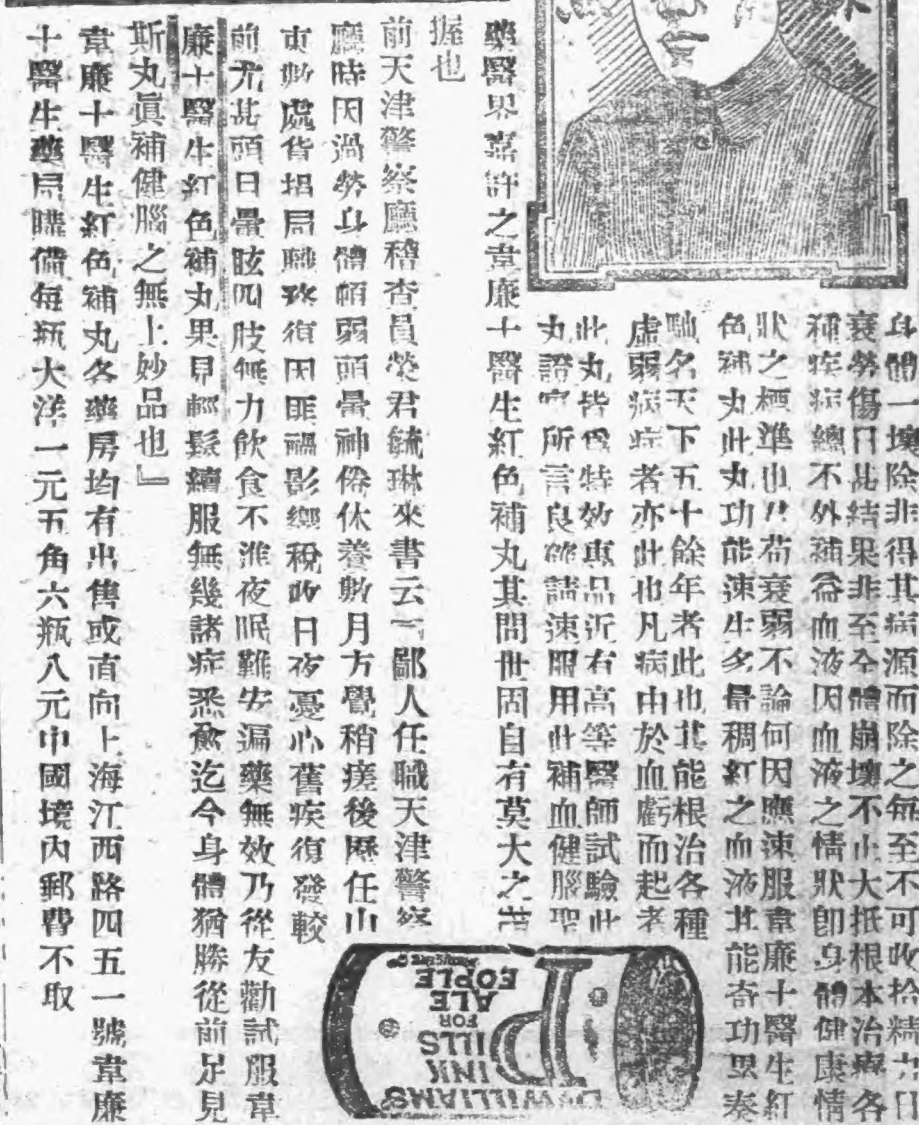 身體一壞除非得其病源而除之每至不可收拾精力日
衰勞傷日甚結果非至全體崩壞不止大抵根本治療各
種疾病總不外補益血液因血液之情狀即身體健康情
狀之標準也君苟衰弱不論何因應速服韋廉士醫生紅
色補丸此丸功能速生多量稠紅之血液其能奇功累奏
馳名天下五十餘年者此也其能根治各種
虛弱病症者亦此也凡病由於血虧而起者
此丸皆爲特效專品近有高等醫師試驗此
丸證實所言良確請速服用此補血健腦聖
藥醫界嘉許之韋廉士醫生紅色補丸其問世固自有莫大之
握也
前天津警察廳稽查員榮君毓琳來書云『鄙人任職天津警察
廳時因過勞身體頓弱頭暈神倦休養數月方覺稍瘥後歷任山
東數處貨捐局職務復因匪禍影響稅收日夜憂心舊疾復發較
前尤甚頭目暈眩四肢無力飲食不進夜眠難安遍藥無效乃從友勸試服韋
廉士醫生紅色補丸果見輕鬆續服無幾諸症悉愈迄今身體猶勝從前足見
斯丸眞補健腦之無上妙品也』
韋廉士醫生紅色補丸各藥房均有出售或直向上海江西路四五一號韋廉
士醫生藥局購備每瓶大洋一元五角六瓶八元中國境內郵費不取
DR WILLIAMS
PINK
PILLS
FOR
PALE
PEOPLE